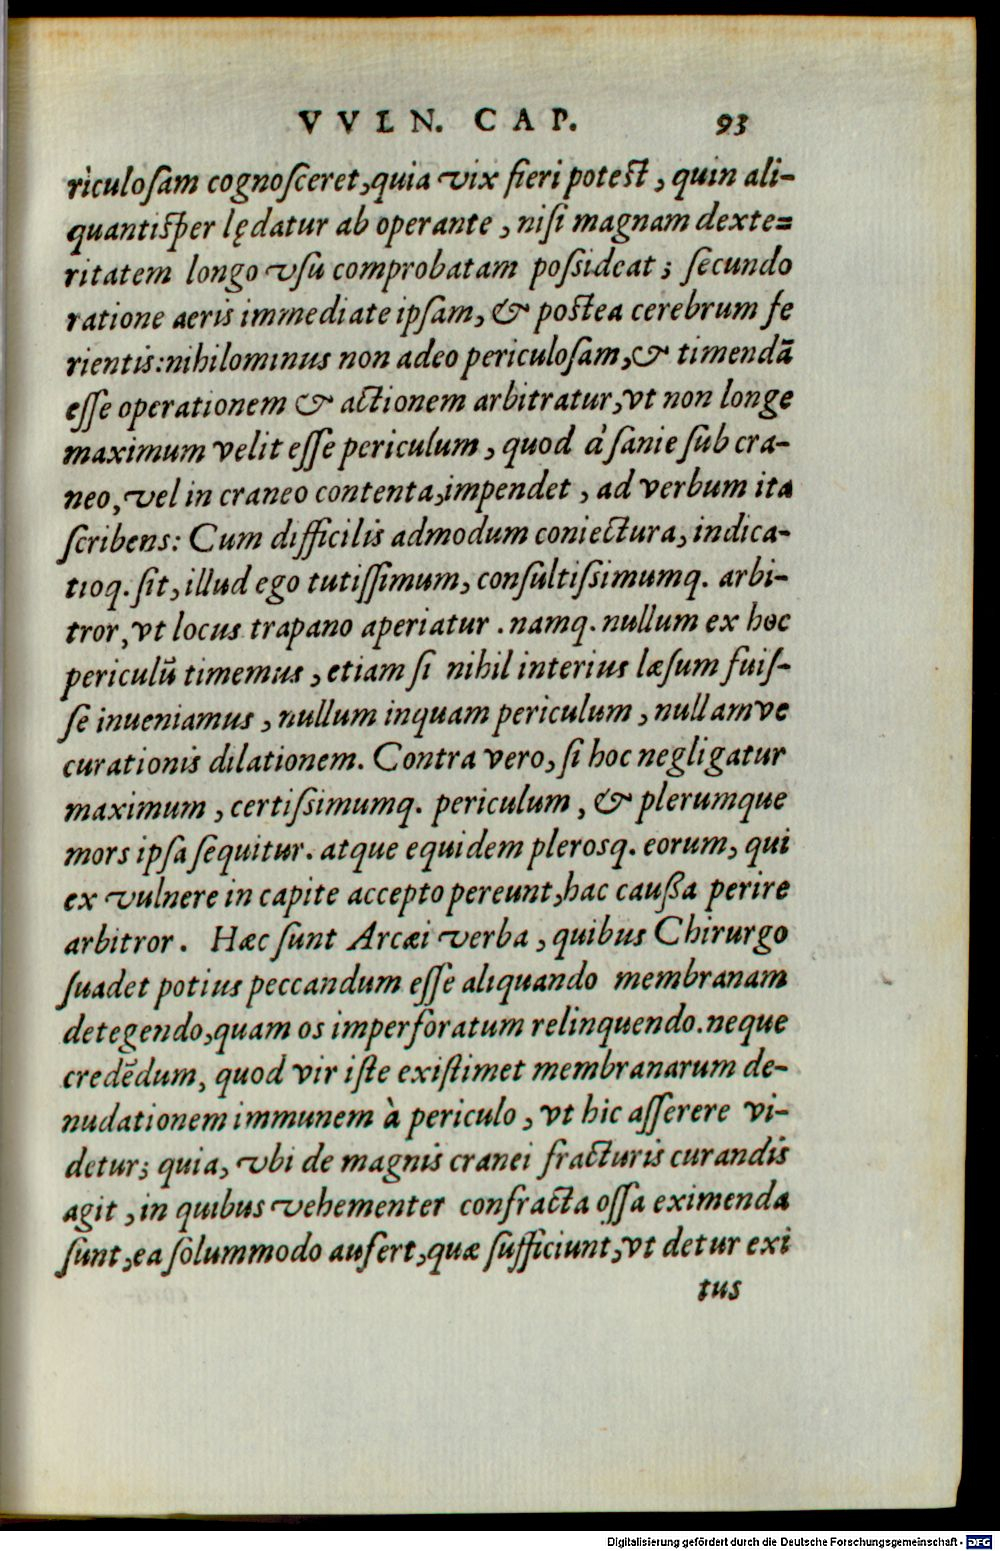 VVLN. CAP. 93
riculosam cognosceret, quia vix fieri potest, quin ali-
quantisper lędatur ab operante, nisi magnam dexte=
ritatem longo vsu comprobatam possideat; secundo
ratione aeris immediate ipsam, & postea cerebrum fe
rientis: nihilominus non adeo periculosam, & timendā
esse operationem & actionem arbitratur, vt non longe
maximum velit esse periculum, quod à sanie sub cra-
neo, vel in craneo contenta, impendet, ad verbum ita
scribens: Cum difficilis admodum coniectura, indica-
tioq. sit, illud ego tutissimum, consultissimumq. arbi-
tror, vt locus trapano aperiatur. namq. nullum ex hoc
periculū timemus, etiam si nihil interius læsum fuis-
se inueniamus, nullum inquam periculum, nullamve
curationis dilationem. Contra vero, si hoc negligatur
maximum, certissimumq. periculum, & plerumque
mors ipsa sequitur. atque equidem plerosq. eorum, qui
ex vulnere in capite accepto pereunt, hac caußa perire
arbitror. Hæc sunt Arcæi verba, quibus Chirurgo
suadet potius peccandum esse aliquando membranam
detegendo, quam os imperforatum relinquendo. neque
credēdum, quod vir iste existimet membranarum de-
nudationem immunem à periculo, vt hic asserere vi-
detur; quia, vbi de magnis cranei fracturis curandis
agit, in quibus vehementer confracta ossa eximenda
sunt, ea solummodo aufert, quæ sufficiunt, vt detur exi
tus
Digitalisierung gefördert durch die Deutsche Forschungsgemeinschaft - DFG